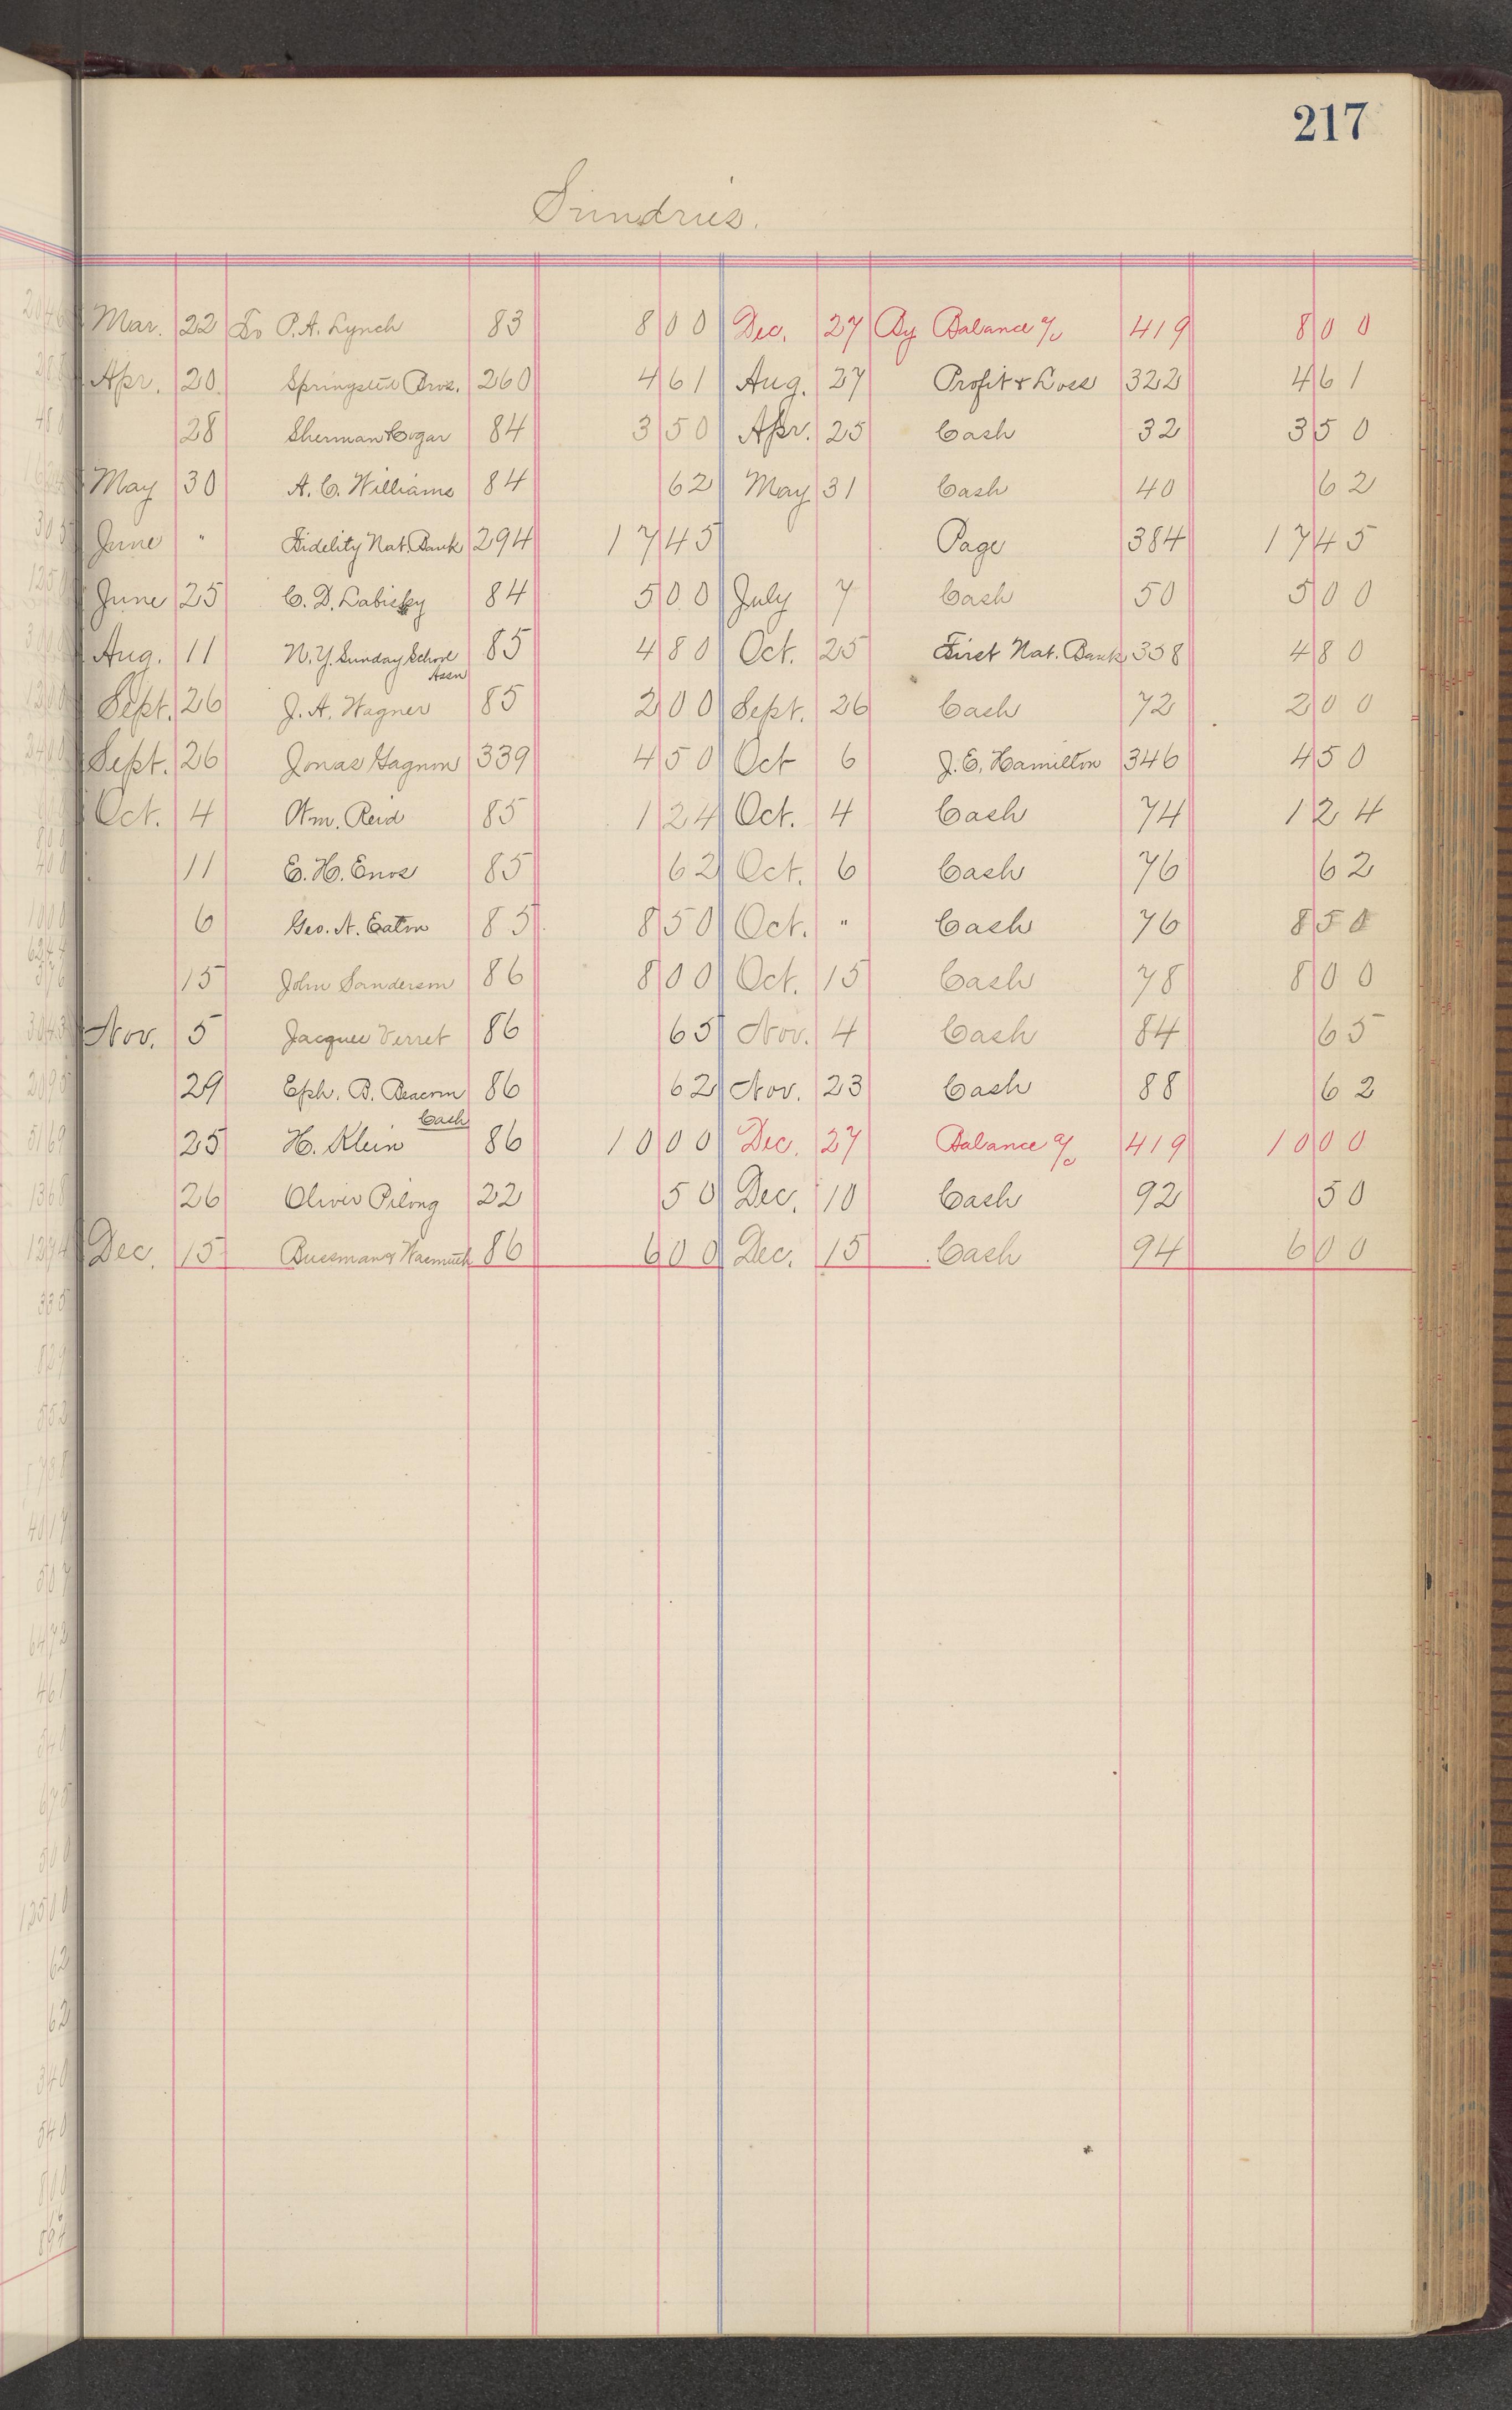 217
Sundries.
Mar. 22 To P. A. Lynch 83 8 00 Dec. 27 By Balance a/c 419 8 00
Apr. 20 Springsted Bros. 260 4 61 Aug. 27 Profit & Loss 322 4 61
28 Sherman & Cogar 84 3 50 Apr. 25 Cash 32 3 50
May 30 A. C. Williams 84 62 May 31 Cash 40 62
June " Fidelity Nat. Bank 294 17 45 Page 384 17 45
June 25 C. D. Labisky 84 5 00 July 7 Cash 50 5 00
Aug. 11 N. Y. Sunday School Assn 85 4 80 Oct. 25 First Nat. Bank 358 4 80
Sept. 26 J. A. Wagner 85 2 00 Sept. 26 Cash 72 2 00
Sept. 26 Jonas Gagnon 339 4 50 Oct 6 J. E. Hamilton 346 4 50
Oct. 4 Wm. Reid 85 1 24 Oct. 4 Cash 74 1 24
11 E. H. Enos 85 62 Oct. 6 Cash 76 62
6 Geo. A. Eaton 85 8 50 Oct. " Cash 76 8 50
15 John Sanderson 86 8 00 Oct. 15 Cash 78 8 00
Nov. 5 Jacques Verret 86 65 Nov. 4 Cash 84 65
29 Eph. B. Beacom 86 62 Nov. 23 Cash 88 62
25 H. Klein Cash 86 10 00 Dec. 27 Balance a/c 419 10 00
26 Oliver Pilong 22 50 Dec. 10 Cash 92 50
Dec. 15 Bussman & Wasmuth 86 6 00 Dec. 15 Cash 94 6 00